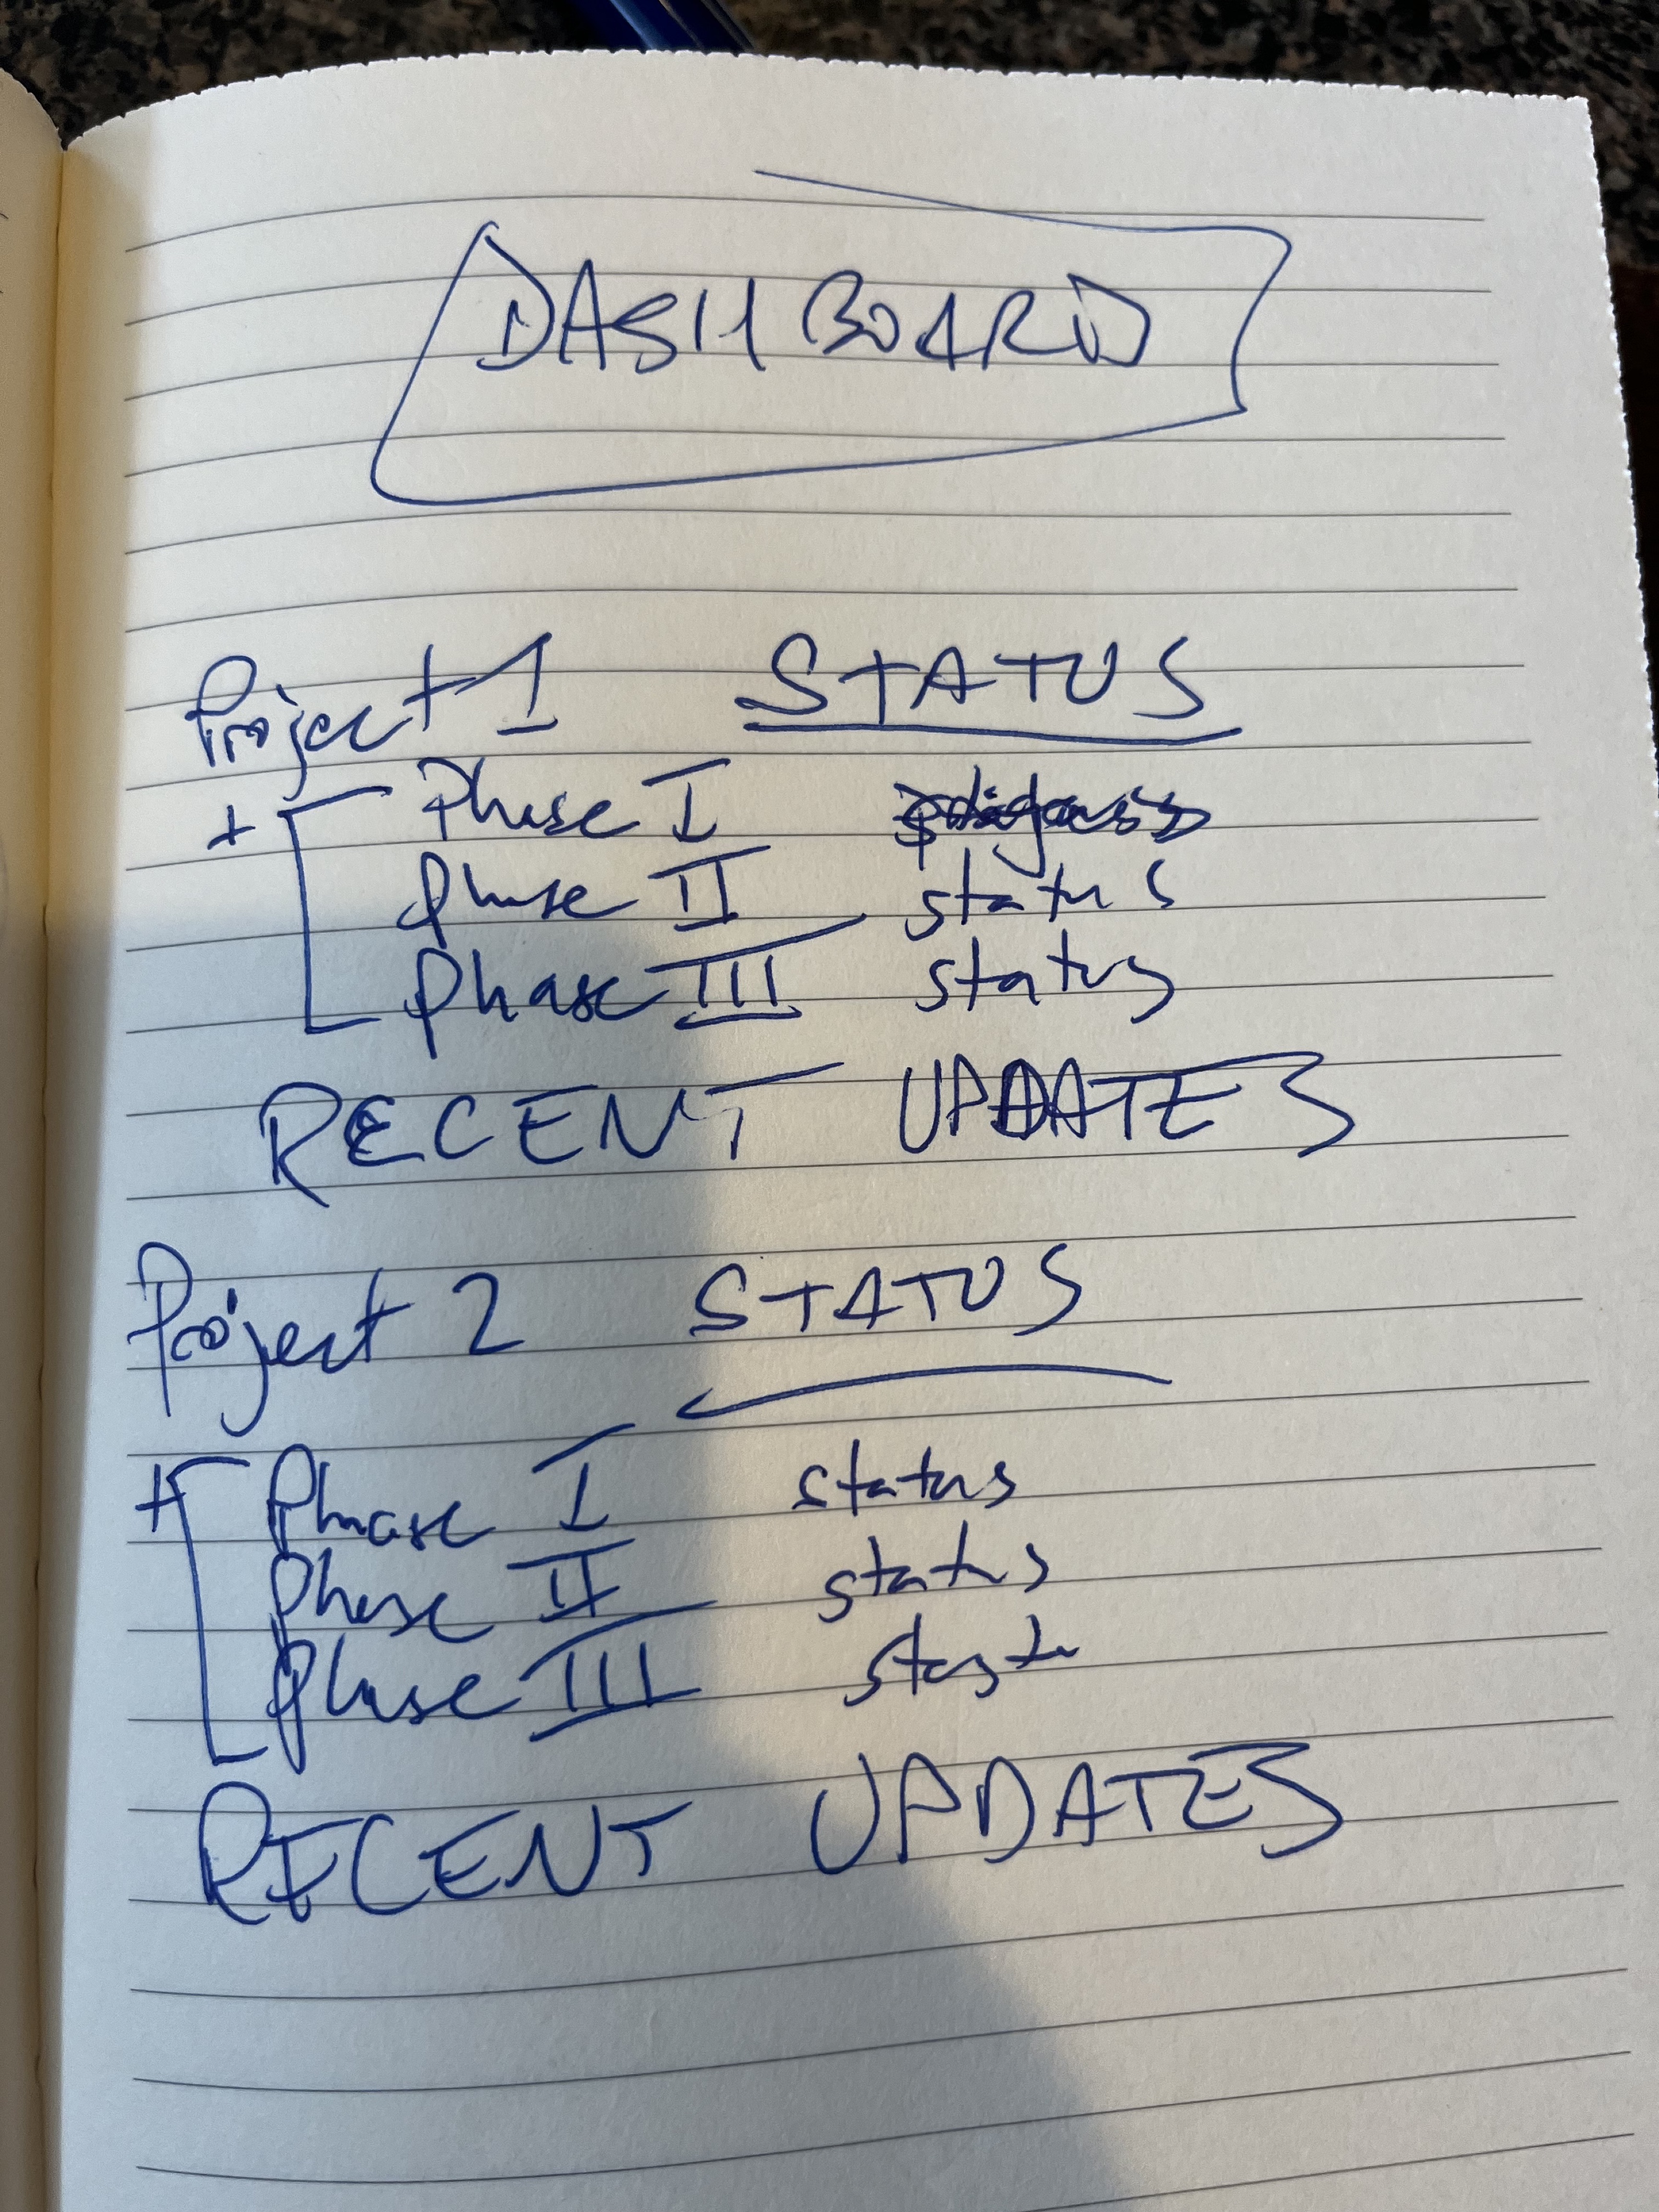 DASHBOARD
Project 1 STATUS
+ Phase I
Phase II status
Phase III status
RECENT UPDATES
Project 2 STATUS
+ Phase I status
Phase II status
Phase III
RECENT UPDATES